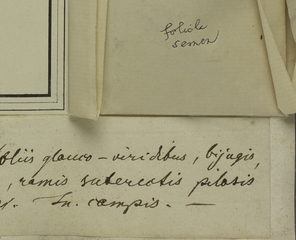 foliola
semen
foliis glauco-viridibus, bijugis,
, ramis suberectis pilosis
In campis. —